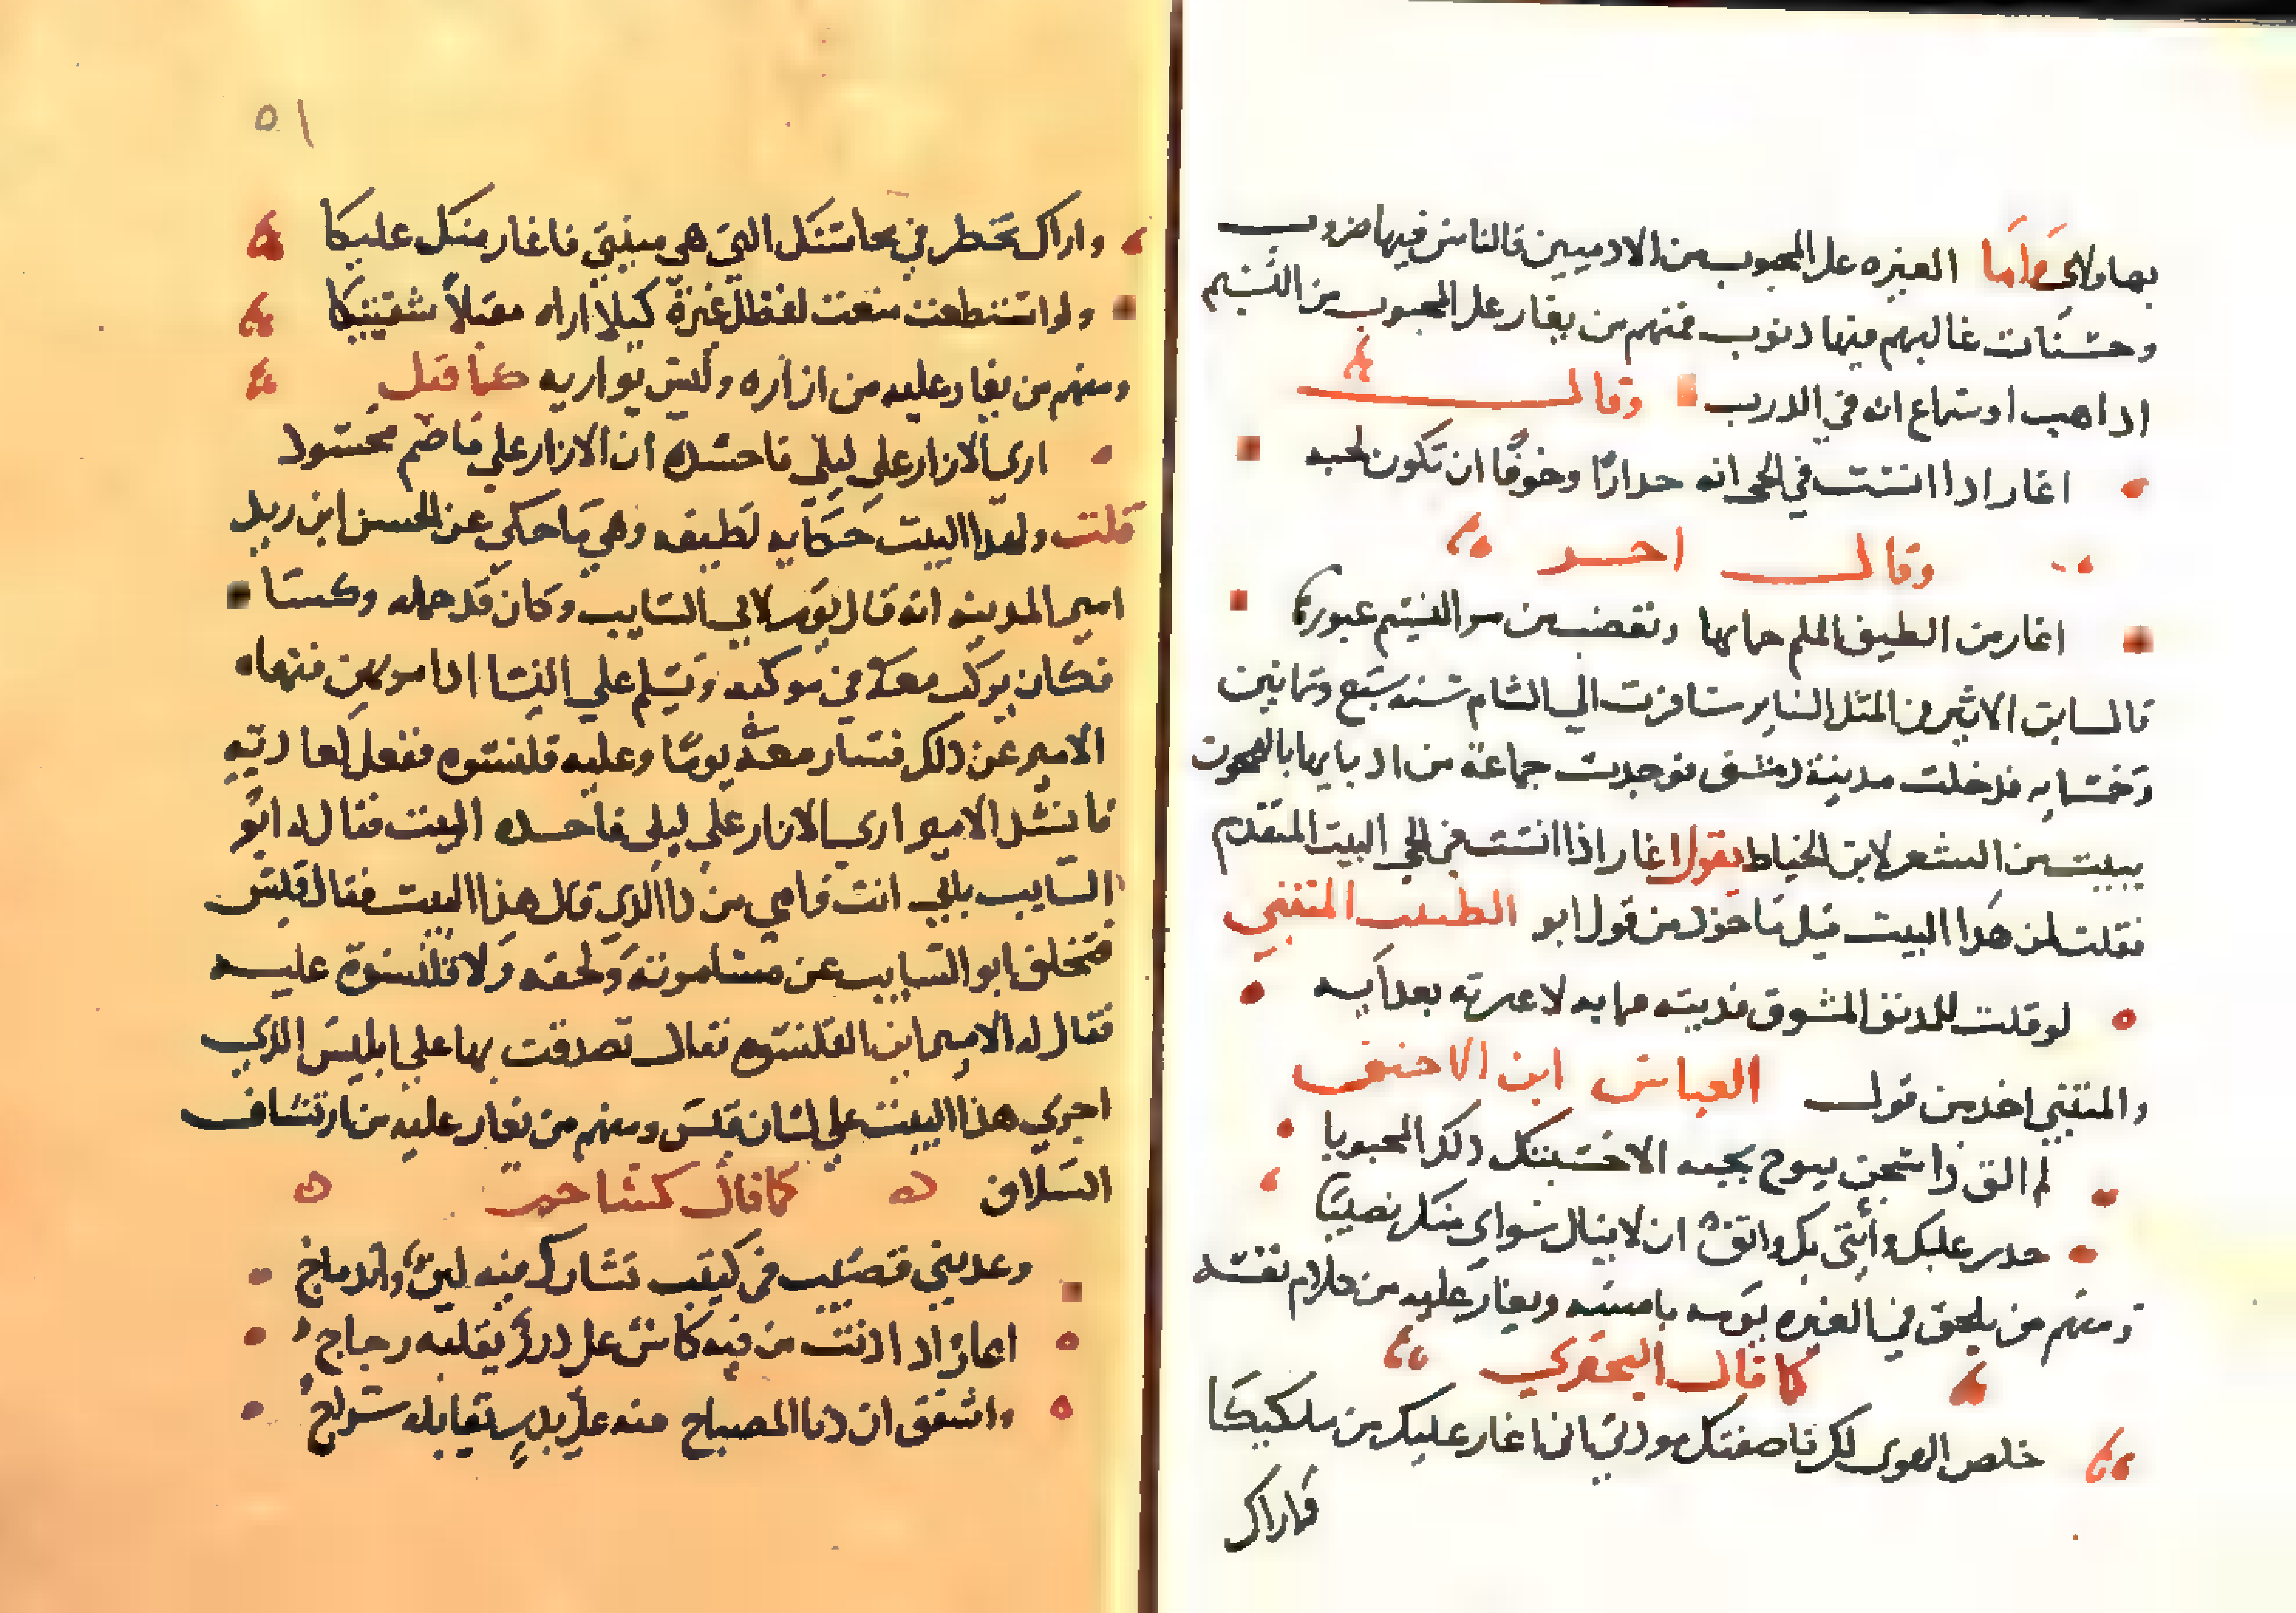 بها ولاى واما الغيره على المحبوب من الادميين فالناس فيها ضروب
وحسنات غالبهم فيها دنوب فمنهم من يغار على المحبوب من النسيم
ادا هب او سماع انه في الدرب وقال
اغار ادا انست في الحى انه حدارا وخوفا ان تكون لحبه
وقال احر
اغار من الطيف الملم حماها ونغضب من مر النسيم غبورها
قال ابن الاثير في المثل الساير سافرت الي الشام سنه سبع وثمانين
وخمسمايه فدخلت مدينة دمشق فوجدت جماعة من ادبايها يلهجون
ببيت من الشعر لابن الخياط يقول اغار اذا انست في الحي البيت المتقدم
فقلت لهم هدا البيت قيل ماخوذ من قول ابو الطيب المتنبي
لو قلت للدنف المشوق فديته مما به لاغرته بفدايه
والمتنبي اخد من قول العباس ابن الاحنف
لم الق ذا شجن يبوح بحبه الا حسبتك دلك المحبوبا
حدر عليك وأنني بك واثق ان لا ينال سواي منك نصيبا
ومنهم من يلحق في الغيره يومه بامسه ويغار عليه من كلام نفسه
كما قال البحتري
خلص الهوى لك فاصفتك مودتي اني اغار عليك من ملكيكا
واراك
٥١
واراك تخطر في محاسنك التي هي مبيتي فاغار منك عليكا
ولو استطعت منعت لفظك غيرة كيلا اراه مقبلا شفتيكا
ومنهم من يغار عليه من ازاره وليس يواريه كما قيل
ارى الازار على ليلى فاحسده ان الازار علي ما ضم محسود
قلت ولهدا البيت حكايه لطيفه وهي ما حكي عن الحسن ابن زيد
امير المدينه انه قال يوما لابي السايب وكان قد حمله وكسا
فكان يركب معه في موكبه ويسلم علي النسا ادا مر بهن فنهاه
الامير عن ذلك فسار معه يوما وعليه قلنسوه ففعل لعادته
فانشد الامير اري الازار علي ليلى فاحسده البيت فقال له ابو
السايب بابي انت وامي من دا الذي قال هذا البيت فقال قيس
فتخلف ابو السايب عن مسامرته ولحقه ولا قلنسوة عليه
فقال له الامير اين القلنسوه فقال تصدقت بها علي ابليس الذي
اجري هذا البيت علي لسان قيس ومنهم من يغار عليه من ارتشاف
السلاف كما قال كشاجم
وعديني قضيب في كثيب تشارك فيه لين واندماج
اغار اذا دنت من فيه كاس على درر يقلبه زجاج
واشفق ان دنا المصباح منه علي بدر يقابله سراج